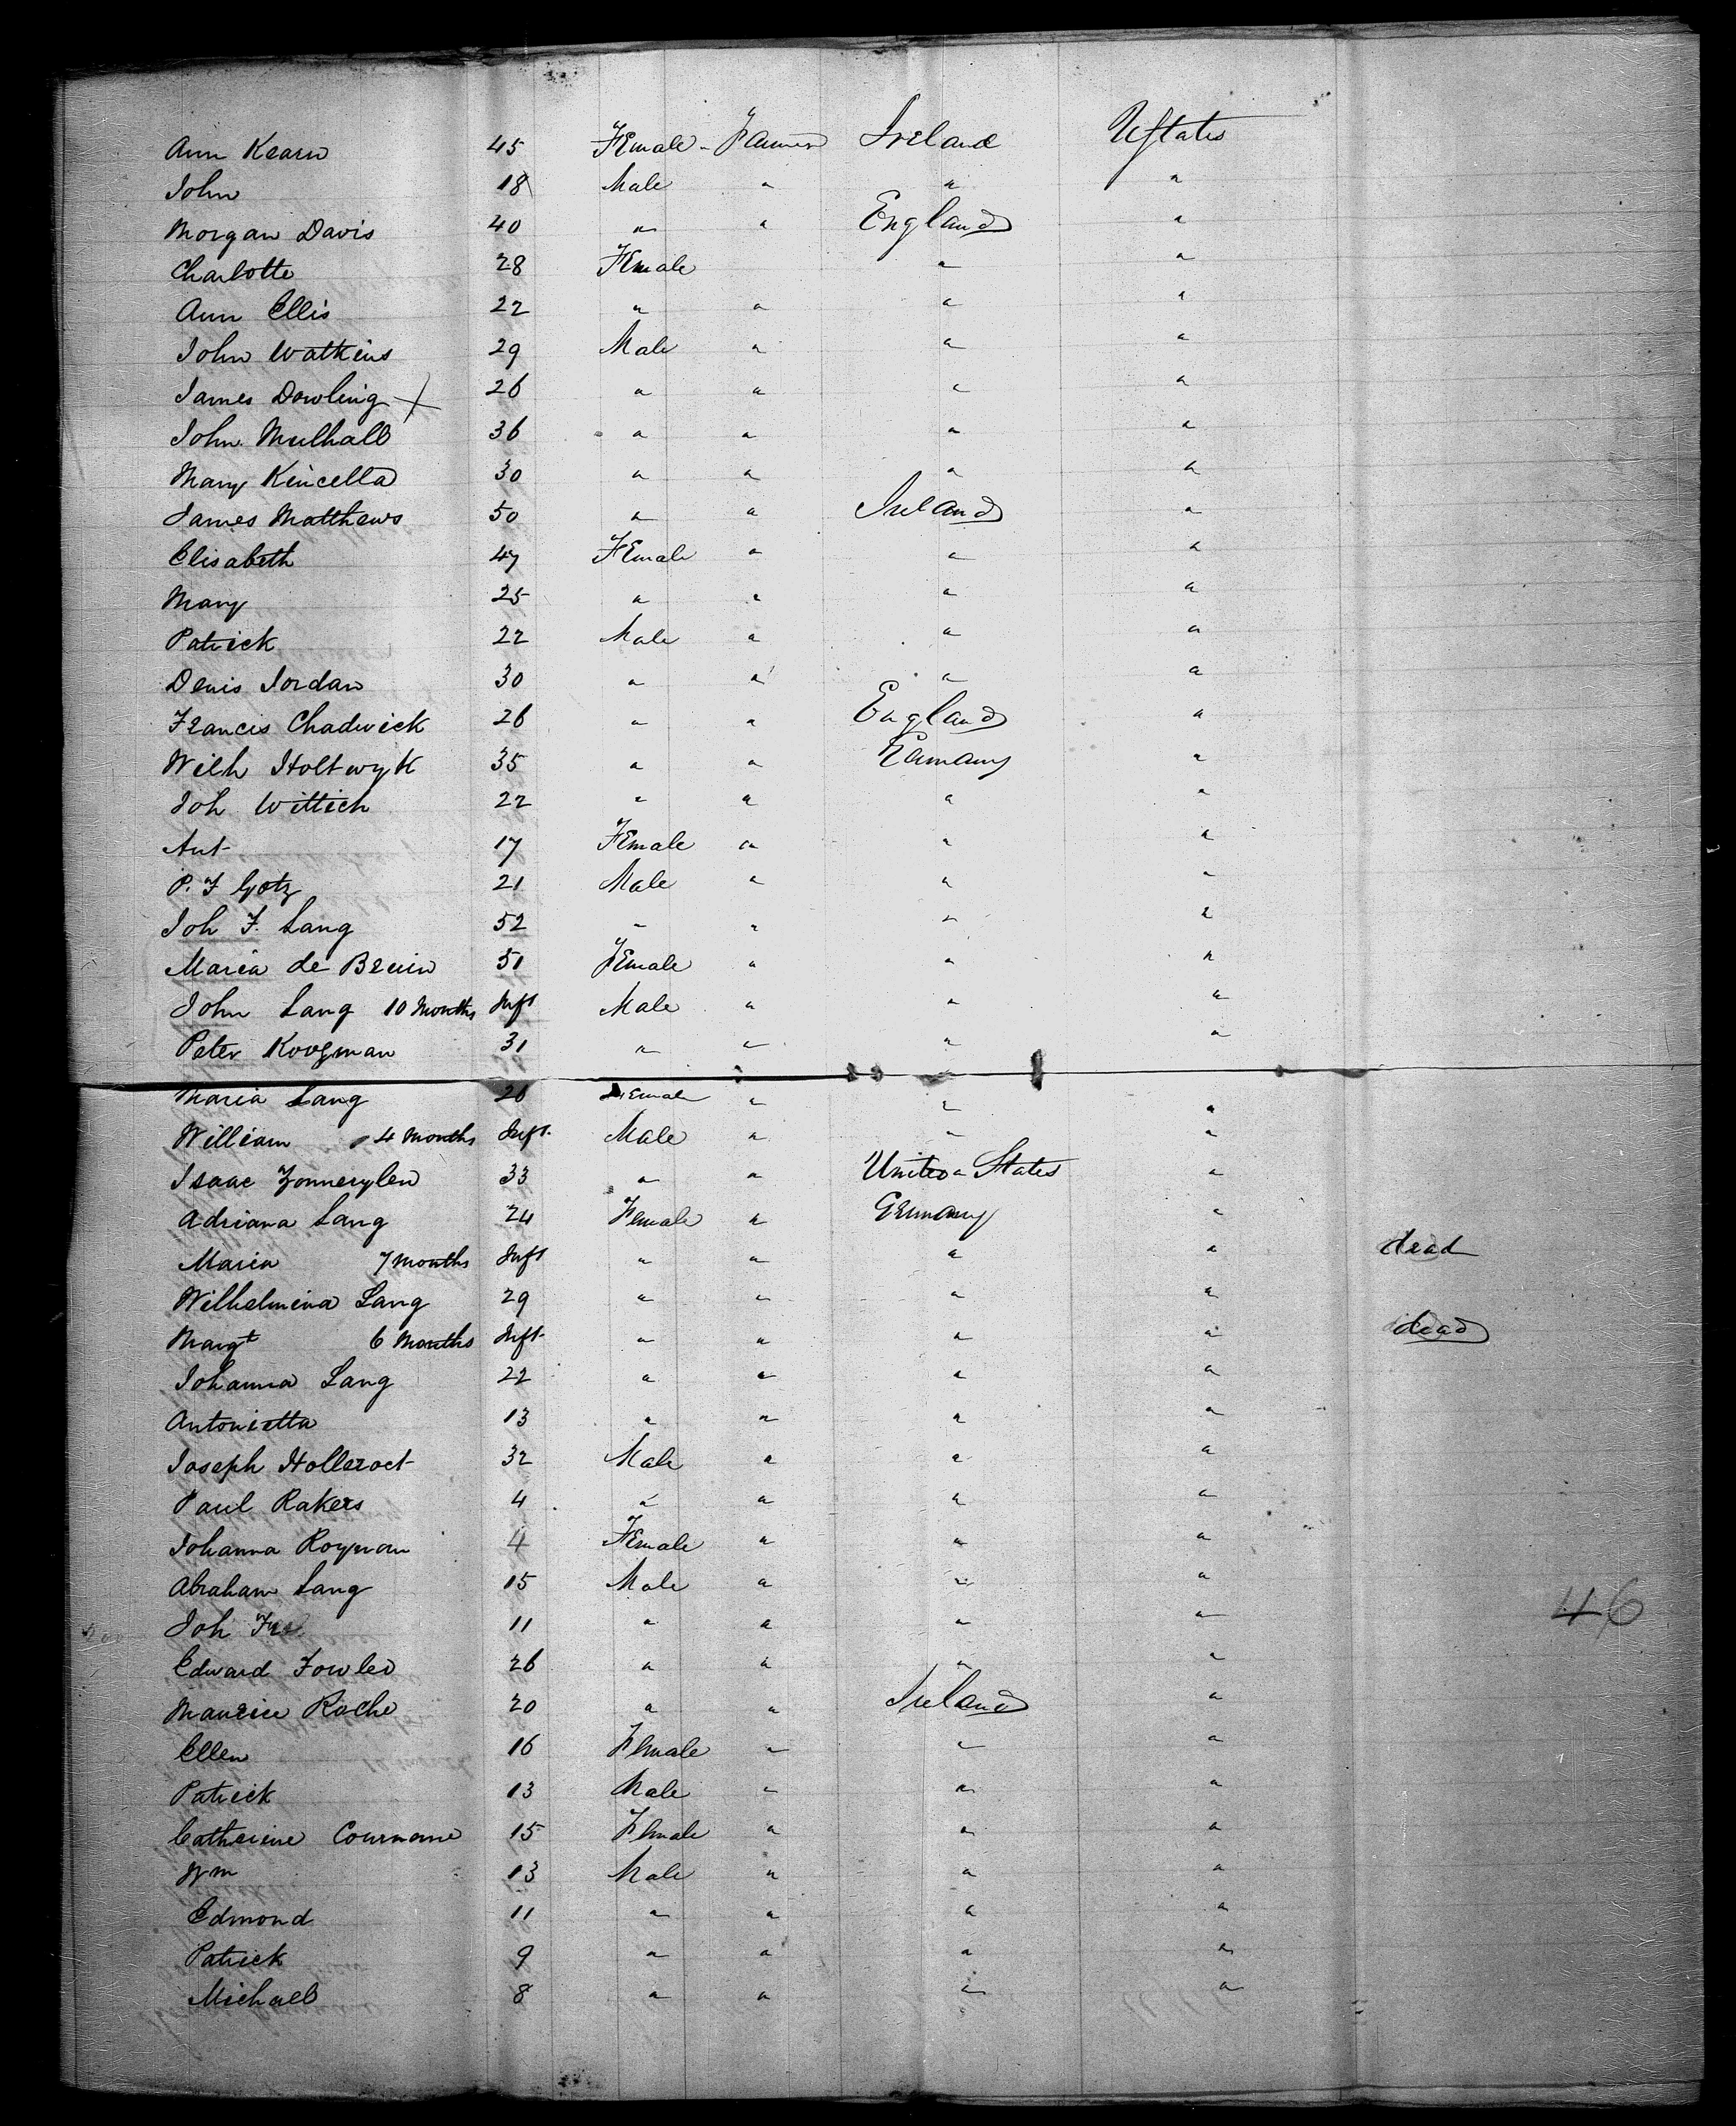 Ann Kearn 45 Female - Farmer Ireland UStates
John 18 Male " " "
Morgan Davis 40 " " England "
Charlotte 28 Female " "
Ann Ellis 22 " " " "
John Watkins 29 Male " " "
James Dowling X 26 " " " "
John Mulhall 36 " " " "
Mary Kincella 30 " " " "
James Matthews 50 " " Ireland "
Elisabeth 47 Female " " "
Mary 25 " " " "
Patrick 22 Male " " "
Denis Jordan 30 " " " "
Francis Chadwick 26 " " England "
Wilh Holtwyk 35 " " "
Joh Wittich 22 " " " "
Ant 17 Female " " "
P. F Gotz 21 Male " " "
Joh F. Lang 52 " " " "
Maria de Bruin 51 Female " " "
John Lang 10 Months Inft Male " " "
Peter Koogman 31 " " " "
Maria Lang 26 Female " " "
William 4 Months Inft Male " " "
Isaac Zonnerylen 33 " " United States "
Adriana Lang 24 Female " Germany "
Maria 7 Months Inft " " " " dead
Wilhelmina Lang 29 " " " "
Margt 6 Months Inft " " " " dead
Johanna Lang 22 " " " "
Antonietta 13 " " " "
Joseph Holleroet 32 Male " " "
Paul Rakers 4 " " " "
Johanna Roynan 4 Female " " "
Abraham Lang 15 Male " " "
46
Joh 11 " " " "
Edward Fowler 26 " " " "
Maurice Roche 20 " " Ireland "
Ellen 16 Female " " "
Patrick 13 Male " " "
Catherine Cournane 15 Female " " "
Wm 13 Male " " "
Edmond 11 " " " "
Patrick 9 " " " "
Michael 8 " " " "